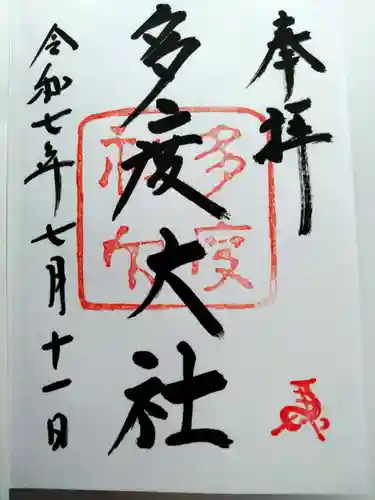 奉拝
多度大社
令和七年七月十一日
多度